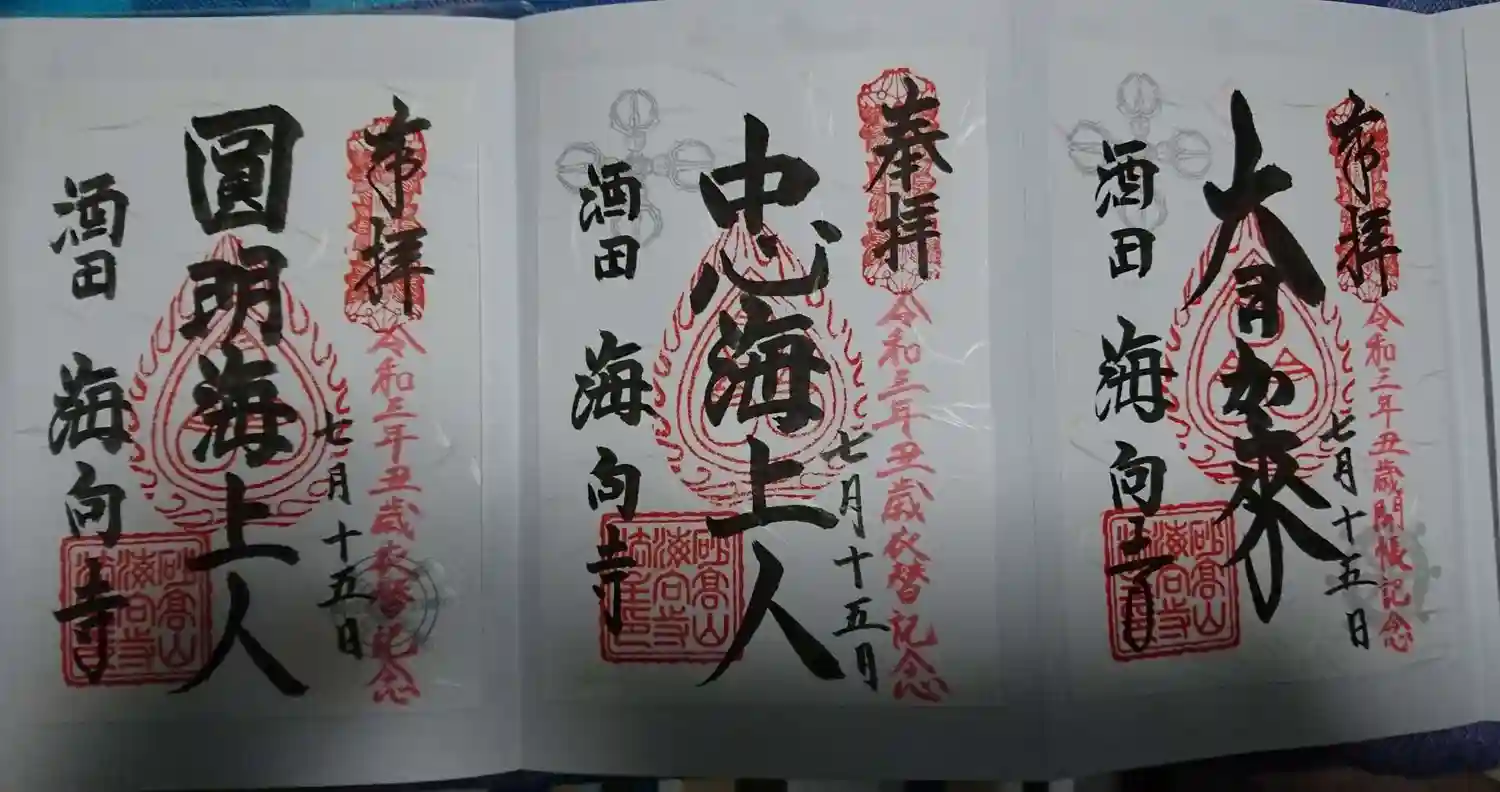 奉拝
令和三年丑歳開帳記念
七月十五日
大日如來
酒田 海向寺
砂高山
海向寺
奉拝
令和三年丑歳衣替記念
七月十五日
忠海上人
酒田 海向寺
砂高山
海向寺
奉拝
令和三年丑歳衣替記念
七月十五日
圓明海上人
酒田 海向寺
砂高山
海向寺